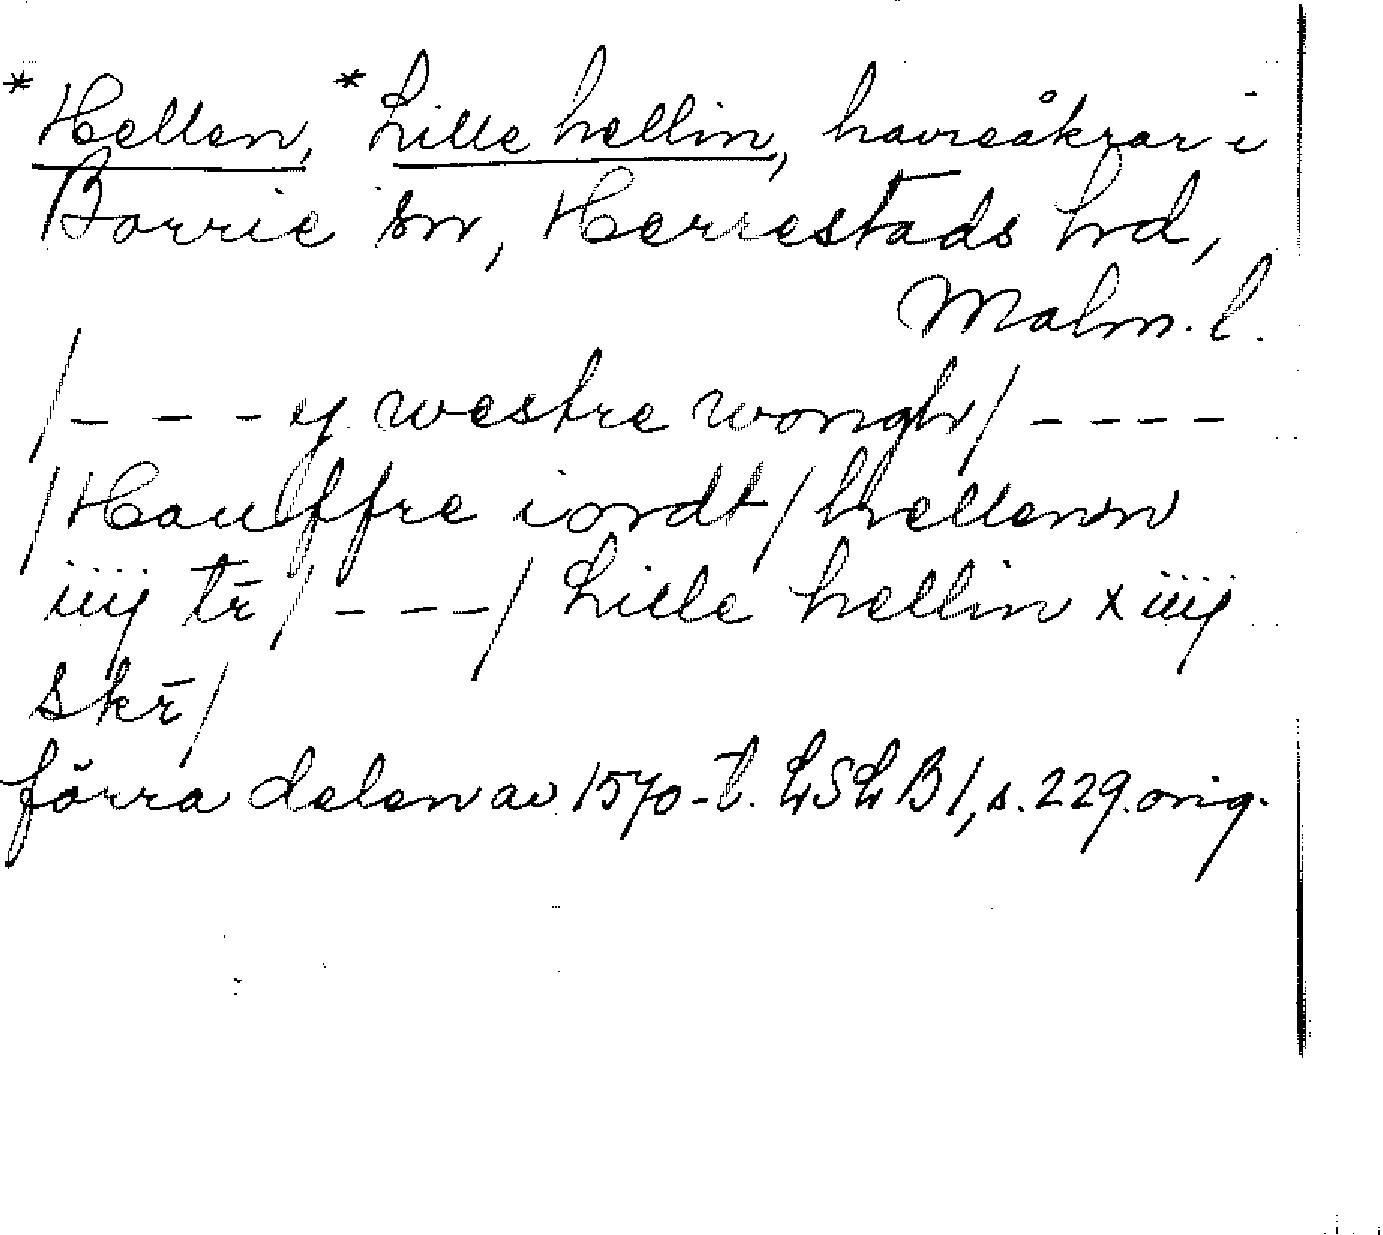 *Hellen, *Lille hellin, havreåkrar i
Borrie sn, Herrestads hd,
Malm. l.
/- - - y westre wongh/ - - - -
/Hauffre iordt/ hellenn
iiij tr̄/ - - -/ Lille hellin xiiij
skr̄/
förra delen av 1570-t. LSLB 1, s. 229. orig.